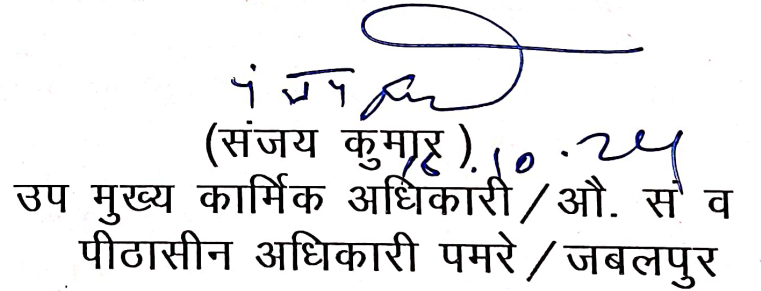 (संजय कुमार)
16.10.24
उप मुख्य कार्मिक अधिकारी/औ. सं व
पीठासीन अधिकारी पमरे/जबलपुर